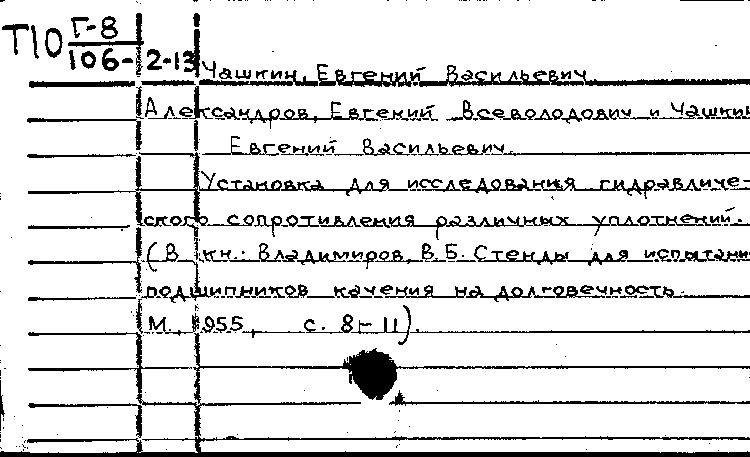 Т10 Г-8
106- 2-13
Чашкин, Евгений Васильевич.
Александров, Евгений Всеволодович и Чашкин
Евгений Васильевич.
Установка для исследования гидравличе-
ского сопротивления различных уплотнений.
(В кн.: Владимиров, В.Б. Стенды для испытани
подшипников качения на долговечность.
М., 1955, с. 8-11).